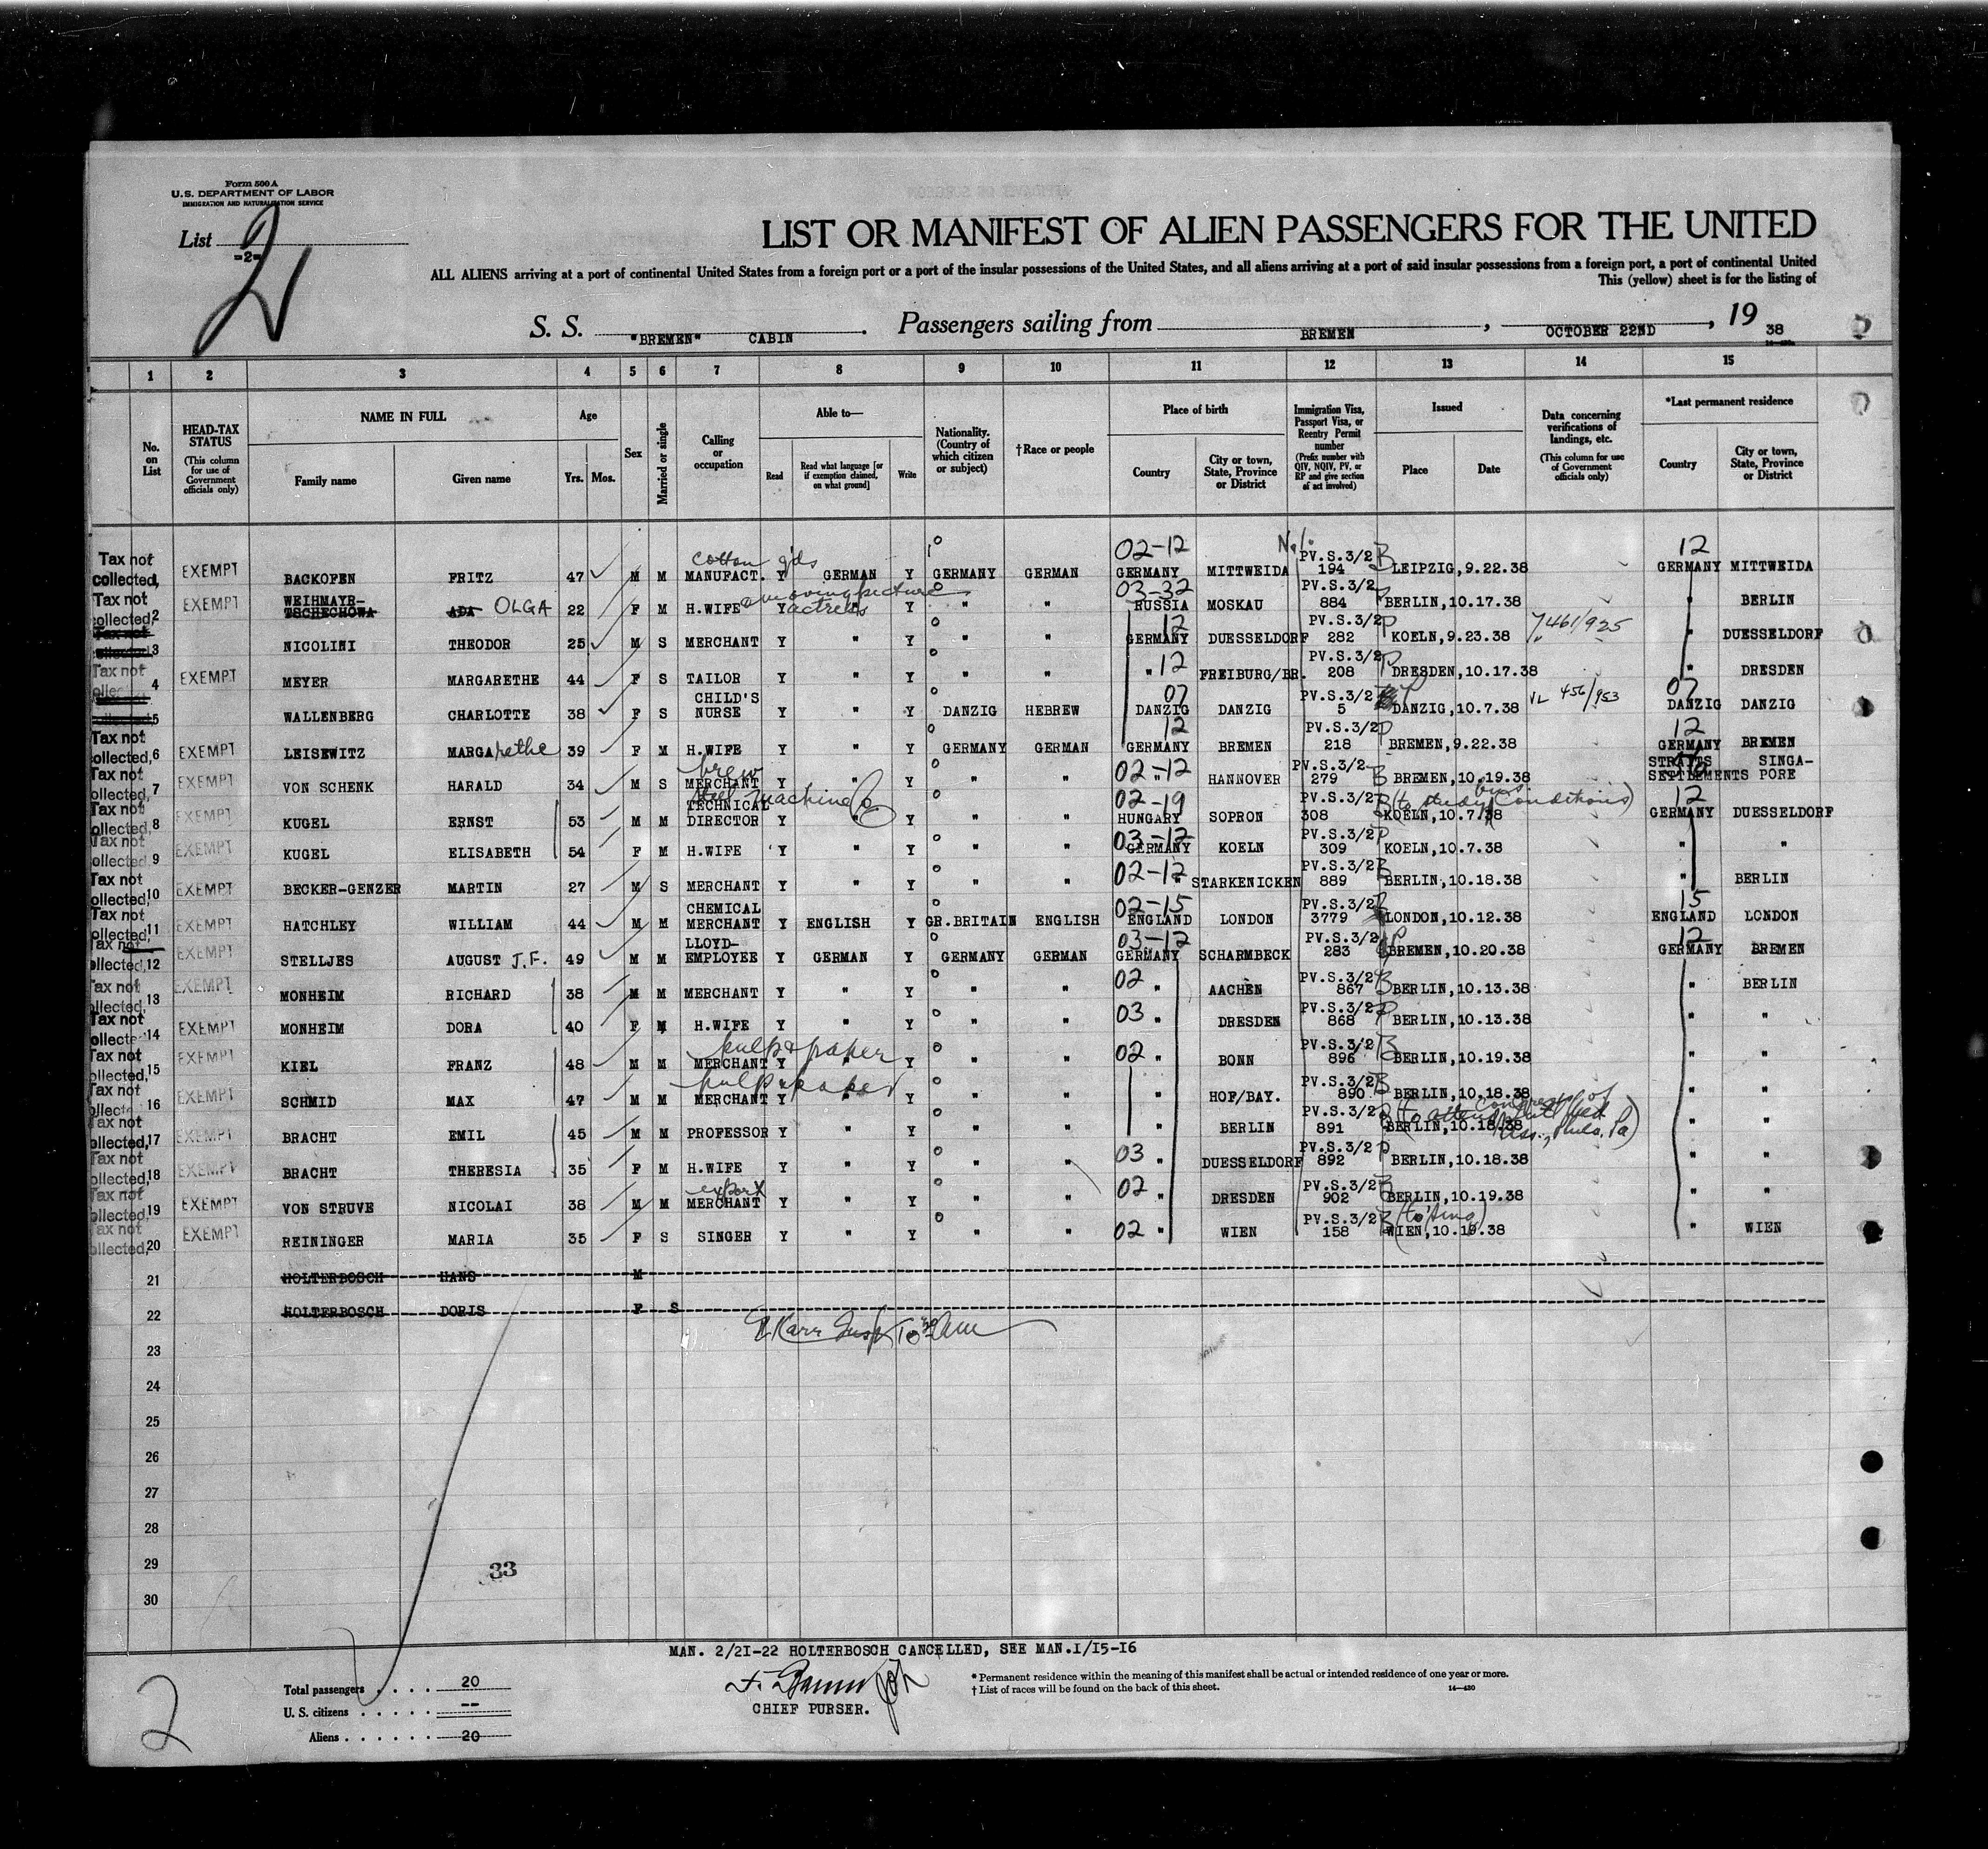 Form 500 A
U.S. DEPARTMENT OF LABOR
IMMIGRATION AND NATURALIZATION SERVICE
List 2
-2-
LIST OR MANIFEST OF ALIEN PASSENGERS FOR THE UNITED
ALL ALIENS arriving at a port of continental United States from a foreign port or a port of the insular possessions of the United States, and all aliens arriving at a port of said insular possessions from a foreign port, a port of continental United
This (yellow) sheet is for the listing of
S. S. "BREMEN" CABIN . Passengers sailing from BREMEN , OCTOBER 22ND , 19 38
1 2 3 4 5 6 7 8 9 10 11 12 13 14 15
No. on List
HEAD-TAX STATUS (This column for use of Government officials only)
NAME IN FULL Family name Given name
Age Yrs. Mos.
Sex
Married or single
Calling or occupation
Able to— Read Read what language [or if exemption claimed, on what ground] Write
Nationality. (Country of which citizen or subject)
†Race or people
Place of birth Country City or town, State, Province or District
Immigration Visa, Passport Visa, or Reentry Permit number (Prefix number with QIV, NQIV, PV, or RP and give section of act involved)
Issued Place Date
Data concerning verifications of landings, etc. (This column for use of Government officials only)
*Last permanent residence Country City or town, State, Province or District
Tax not collected, 1 EXEMPT BACKOFEN FRITZ 47 M M cotton gds MANUFACT. Y GERMAN Y GERMANY GERMAN 02-12 GERMANY MITTWEIDA PV.S.3/2 194 B LEIPZIG,9.22.38 12 GERMANY MITTWEIDA
Tax not collected, 2 EXEMPT WEIHMAYR-TSCHECHOWA ADA OLGA 22 F M H.WIFE moving picture actress Y " Y " " 03-32 RUSSIA MOSKAU PV.S.3/2 884 P BERLIN,10.17.38 " BERLIN
Tax not collected 3 NICOLINI THEODOR 25 M S MERCHANT Y " Y " " 12 GERMANY DUESSELDORF PV.S.3/2 282 P KOELN,9.23.38 7461/925 " DUESSELDORF
Tax not 4 EXEMPT MEYER MARGARETHE 44 F S TAILOR Y " Y " " " 12 FREIBURG/BR. PV.S.3/2 208 P DRESDEN,10.17.38 " DRESDEN
collected, 5 WALLENBERG CHARLOTTE 38 F S CHILD'S NURSE Y " Y DANZIG HEBREW 07 DANZIG DANZIG PV.S.3/2 5 P DANZIG,10.7.38 VL 456/953 07 DANZIG DANZIG
Tax not collected, 6 EXEMPT LEISEWITZ MARGArethe 39 F M H.WIFE Y " Y GERMANY GERMAN 12 GERMANY BREMEN PV.S.3/2 218 P BREMEN,9.22.38 12 GERMANY BREMEN
Tax not collected, 7 EXEMPT VON SCHENK HARALD 34 M S brew MERCHANT Y " Y " " 02-12 " HANNOVER PV.S.3/2 279 B BREMEN,10.19.38 STRAITS SETTLEMENTS SINGA-PORE
Tax not collected, 8 EXEMPT KUGEL ERNST 53 M M steel machine Co TECHNICAL DIRECTOR Y " Y " " 02-19 HUNGARY SOPRON PV.S.3/2 308 B (to study bus. conditions) KOELN,10.7.38 12 GERMANY DUESSELDORF
Tax not collected 9 EXEMPT KUGEL ELISABETH 54 F M H.WIFE Y " Y " " 03-12 GERMANY KOELN PV.S.3/2 309 P KOELN,10.7.38 " "
Tax not collected, 10 EXEMPT BECKER-GENZER MARTIN 27 M S MERCHANT Y " Y " " 02-12 " STARKENICKEN PV.S.3/2 889 B BERLIN,10.18.38 " BERLIN
Tax not collected, 11 EXEMPT HATCHLEY WILLIAM 44 M M CHEMICAL MERCHANT Y ENGLISH Y GR.BRITAIN ENGLISH 02-15 ENGLAND LONDON PV.S.3/2 3779 B LONDON,10.12.38 15 ENGLAND LONDON
Tax not collected, 12 EXEMPT STELLJES AUGUST J.F. 49 M M LLOYD-EMPLOYEE Y GERMAN Y GERMANY GERMAN 03-12 GERMANY SCHARMBECK PV.S.3/2 283 P BREMEN,10.20.38 12 GERMANY BREMEN
Tax not collected, 13 EXEMPT MONHEIM RICHARD 38 M M MERCHANT Y " Y " " 02 " AACHEN PV.S.3/2 867 B BERLIN,10.13.38 " BERLIN
Tax not collecte 14 EXEMPT MONHEIM DORA 40 F M H.WIFE Y " Y " " 03 " DRESDEN PV.S.3/2 868 P BERLIN,10.13.38 " "
Tax not collected, 15 EXEMPT KIEL FRANZ 48 M M pulp & paper MERCHANT Y " Y " " 02 " BONN PV.S.3/2 896 B BERLIN,10.19.38 " "
Tax not collecte 16 EXEMPT SCHMID MAX 47 M M pulp & paper MERCHANT Y " Y " " " HOF/BAY. PV.S.3/2 890 B BERLIN,10.18.38 " "
Tax not collected, 17 EXEMPT BRACHT EMIL 45 M M PROFESSOR Y " Y " " " BERLIN PV.S.3/2 891 B (to attend congress of Assn., Phila. Pa) BERLIN,10.18.38 " "
Tax not collected, 18 EXEMPT BRACHT THERESIA 35 F M H.WIFE Y " Y " " 03 " DUESSELDORF PV.S.3/2 892 P BERLIN,10.18.38 " "
Tax not collected, 19 EXEMPT VON STRUVE NICOLAI 38 M M export MERCHANT Y " Y " " 02 " DRESDEN PV.S.3/2 902 B BERLIN,10.19.38 " "
Tax not collected, 20 EXEMPT REININGER MARIA 35 F S SINGER Y " Y " " 02 " WIEN PV.S.3/2 158 B (to sing) WIEN,10.19.38 " WIEN
21 HOLTERBOSCH HANS M
22 HOLTERBOSCH DORIS F S
23
24
25
26
27
28
29
30
33
MAN. 2/21-22 HOLTERBOSCH CANCELLED, SEE MAN.1/15-16
CHIEF PURSER.
Total passengers . . . . 20
U. S. citizens . . . . . --
Aliens . . . . . . 20
* Permanent residence within the meaning of this manifest shall be actual or intended residence of one year or more.
† List of races will be found on the back of this sheet.
14—430
2